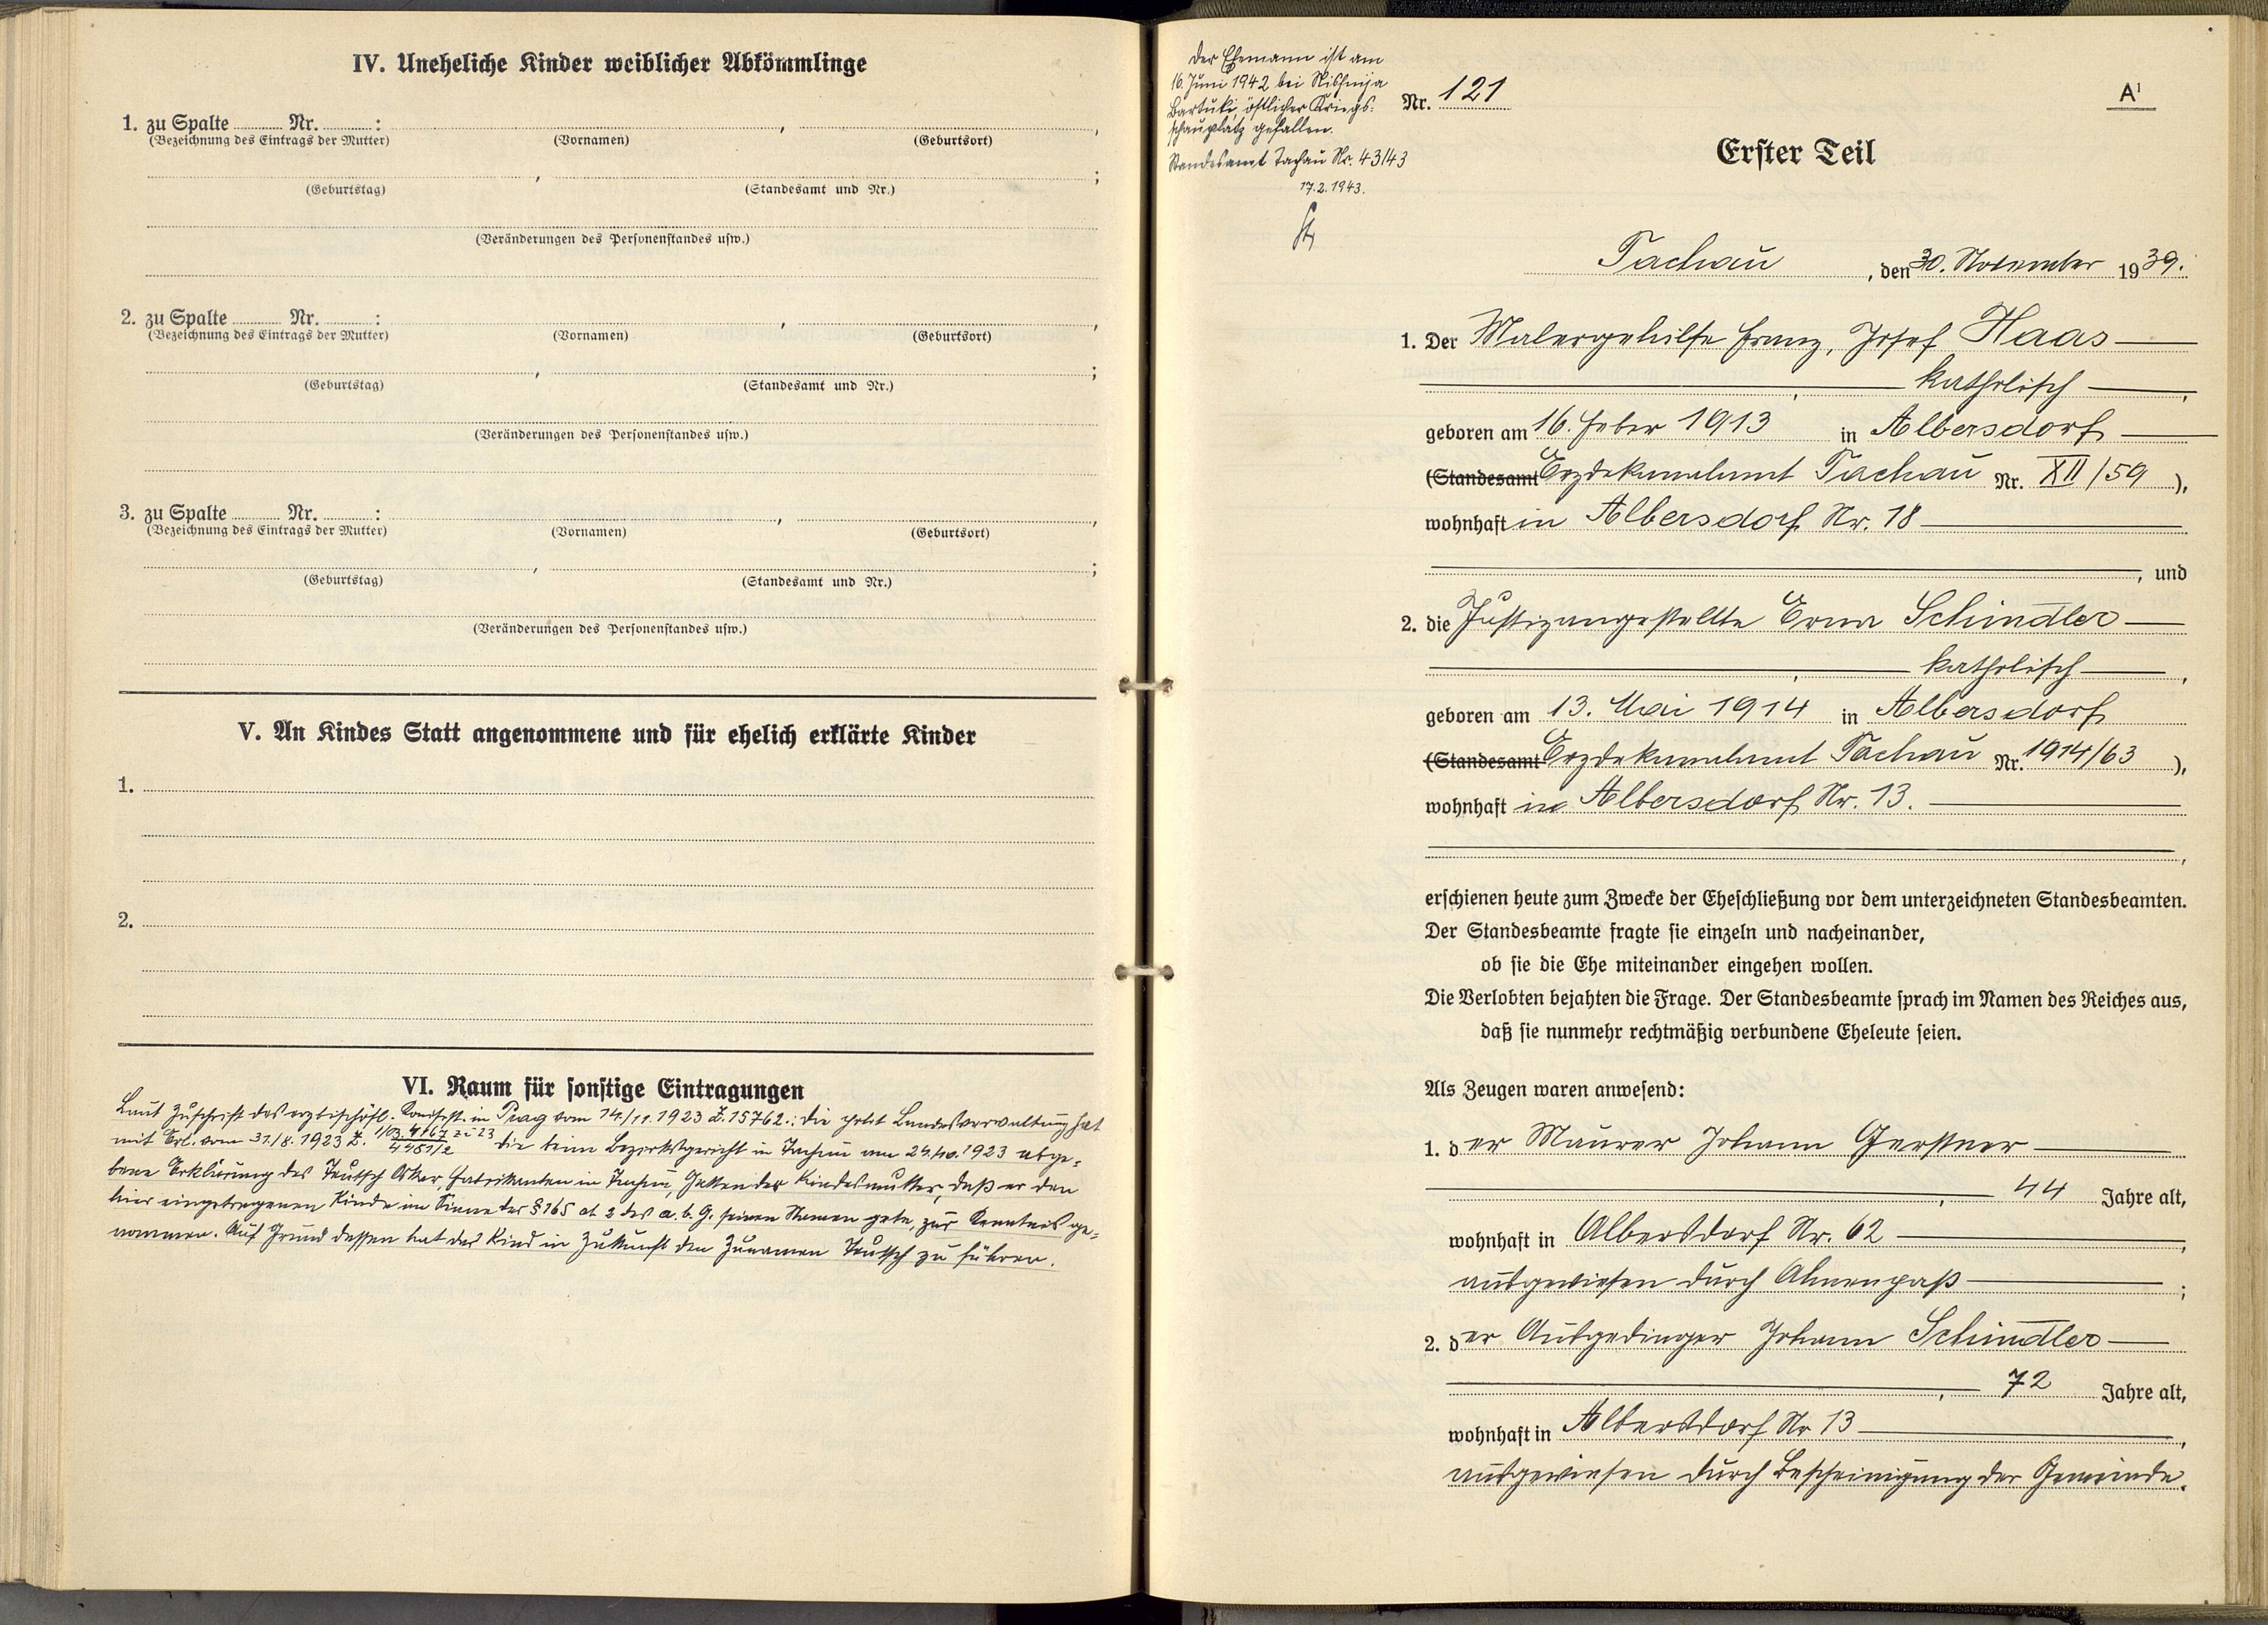 IV. Uneheliche Kinder weiblicher Abkömmlinge
1. zu Spalte Nr. : , ,
(Bezeichnung des Eintrags der Mutter) (Vornamen) (Geburtsort)
, ;
(Geburtstag) (Standesamt und Nr.)
(Veränderungen des Personenstandes usw.)
2. zu Spalte Nr. : , ,
(Bezeichnung des Eintrags der Mutter) (Vornamen) (Geburtsort)
, ;
(Geburtstag) (Standesamt und Nr.)
(Veränderungen des Personenstandes usw.)
3. zu Spalte Nr. : , ,
(Bezeichnung des Eintrags der Mutter) (Vornamen) (Geburtsort)
, ;
(Geburtstag) (Standesamt und Nr.)
(Veränderungen des Personenstandes usw.)
V. An Kindes Statt angenommene und für ehelich erklärte Kinder
1.
2.
VI. Raum für sonstige Eintragungen
Laut Zuschrift des erzbischöfl. in Prag vom 14./11.1923 Z. 15762.: die Landesverwaltung hat
mit Erl. vom 31./8.1923 Z. die beim Bezirksgericht in Tachau am 1923 abge-
bene Erklärung des Teutsch Oskar, Fabrikanten in Tachau, Gatten der Kindesmutter, daß er den
hier eingetragenen Kinde im Sinne des § 165 des a. b. G. seinen Namen gebe, zur Kenntnis ge-
nommen. Auf Grund dessen hat das Kind in Zukunft den Zunamen Teutsch zu führen.
Der Ehemann ist am
16. Juni 1942 bei Nishnija
Bartuki, östlicher Kriegs-
schauplatz gefallen.
Standesamt Tachau Nr. 43/43
17.2.1943.
Nr. 121
A¹
Erster Teil
Tachau, den 30. November 1939.
1. Der Malergehilfe Franz, Josef Haas
, katholisch ,
geboren am 16. Feber 1913 in Albersdorf
(Standesamt Erzdekanalamt Tachau Nr. XII/59 ),
wohnhaft in Albersdorf Nr. 18
, und
2. die Justizangestellte Erna Schindler
, katholisch ,
geboren am 13. Mai 1914 in Albersdorf
(Standesamt Erzdekanalamt Tachau Nr. 1914/63 ),
wohnhaft in Albersdorf Nr. 13.
,
erschienen heute zum Zwecke der Eheschließung vor dem unterzeichneten Standesbeamten.
Der Standesbeamte fragte sie einzeln und nacheinander,
ob sie die Ehe miteinander eingehen wollen.
Die Verlobten bejahten die Frage. Der Standesbeamte sprach im Namen des Reiches aus,
daß sie nunmehr rechtmäßig verbundene Eheleute seien.
Als Zeugen waren anwesend:
1. der Maurer Johann Gerstner
, 44 Jahre alt,
wohnhaft in Albersdorf Nr. 62 ,
ausgewiesen durch Ahnenpaß ;
2. der Ausgedinger Johann Schindler
, 72 Jahre alt,
wohnhaft in Albersdorf Nr 13 ,
ausgewiesen durch Bescheinigung der Gemeinde.